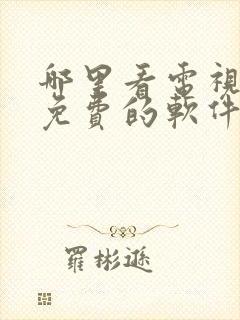 哪里看電視
免費的軟件
羅彬遜